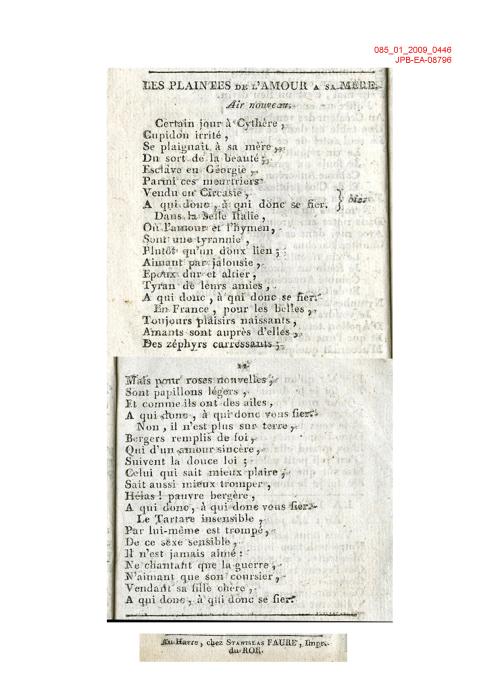 085_01_2009_0446
JPB-EA-08796
LES PLAINTES DE L'AMOUR A SA MÈRE.
Air nouveau.
Certain jour à Cythère,
Cupidon irrité,
Se plaignait à sa mère,
Du sort de la beauté;
Esclave en Géorgie,
Parmi ces meurtriers
Vendu en Circasie,
A qui donc, à qui donc se fier. } bis.
Dans la belle Italie,
Où l'amour et l'hymen,
Sont une tyrannie,
Plutôt qu'un doux lien;
Aimant par jalousie,
Epoux dur et altier,
Tyran de leurs amies,
A qui donc, à qui donc se fier.
En France, pour les belles,
Toujours plaisirs naissants,
Amants sont auprès d'elles,
Des zéphyrs carressants;
Mais pour roses nouvelles,
Sont papillons légers,
Et comme ils ont des ailes,
A qui donc, à qui donc vous fier.
Non, il n'est plus sur terre,
Bergers remplis de foi,
Qui d'un amour sincère,
Suivent la douce loi;
Celui qui sait mieux plaire,
Sait aussi mieux tromper,
Hélas! pauvre bergère,
A qui donc, à qui donc vous fier.
Le Tartare insensible,
Par lui-même est trompé,
De ce sexe sensible,
Il n'est jamais aimé:
Ne chantant que la guerre,
N'aimant que son coursier,
Vendant sa fille chère,
A qui donc, à qui donc se fier.
Au Havre, chez STANISLAS FAURE, Impr.
du ROI.